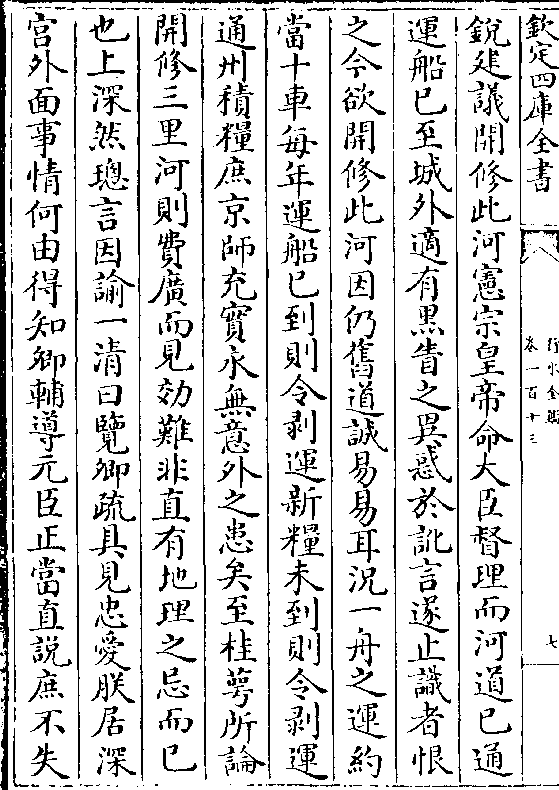 欽定四庫全書
行水金鑑
卷一百十三
七
銳建議開修此河憲宗皇帝命大臣督理而河道已通
運船已至城外適有黒眚之異惑於訛言遂止識者恨
之今欲開修此河因仍舊道誠易易耳況一舟之運約
當十車每年運船已到則令剥運新糧未到則令剥運
通州積糧庶京師充實永無意外之患矣至桂萼所論
開修三里河則費廣而見効難非直有地理之忌而已
也上深然璁言因諭一清曰覽卿疏具見忠愛朕居深
宫外面事情何由得知卿輔導元臣正當直説庶不失